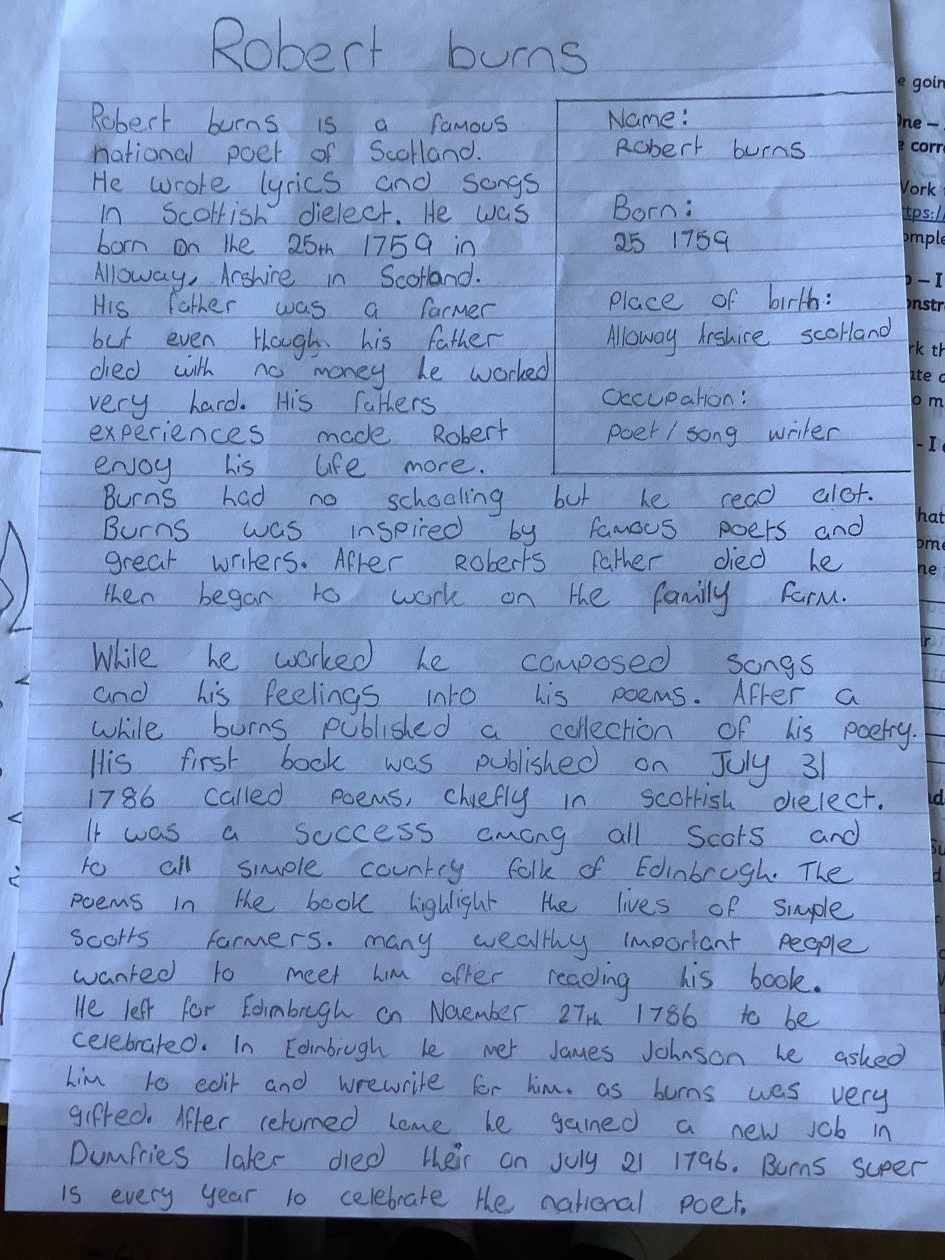 Robert burns
Robert burns is a famous
national poet of Scotland.
He wrote lyrics and songs
in scottish dielect. He was
born on the 25th 1759 in
Alloway, Arshire in Scotland.
His father was a farmer
but even though his father
died with no money he worked
very hard. His fathers
experiences made Robert
enjoy his life more.
Name:
Robert burns
Born:
25 1759
Place of birth:
Alloway Arshire scotland
Occupation:
poet/song writer
Burns had no schooling but he read alot.
Burns was inspired by famous poets and
great writers. After Roberts father died he
then began to work on the familly farm.
While he worked he composed songs
and his feelings into his poems. After a
while burns published a collection of his poetry.
His first book was published on July 31
1786 called poems, chiefly in scottish dielect.
It was a success among all Scots and
to all simple country folk of Edinbrugh. The
poems in the book highlight the lives of simple
scotts farmers. many wealthy important people
wanted to meet him after reading his book.
He left for Edinbrugh on November 27th 1786 to be
celebrated. In Edinbrugh he met James Johnson he asked
him to edit and wrewrite for him. as burns was very
gifted. After returned home he gained a new job in
Dumfries later died their on july 21 1796. Burns super
is every year to celebrate the national poet.